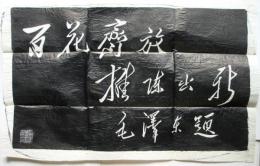 百花齊放
推陈出新
毛澤东題